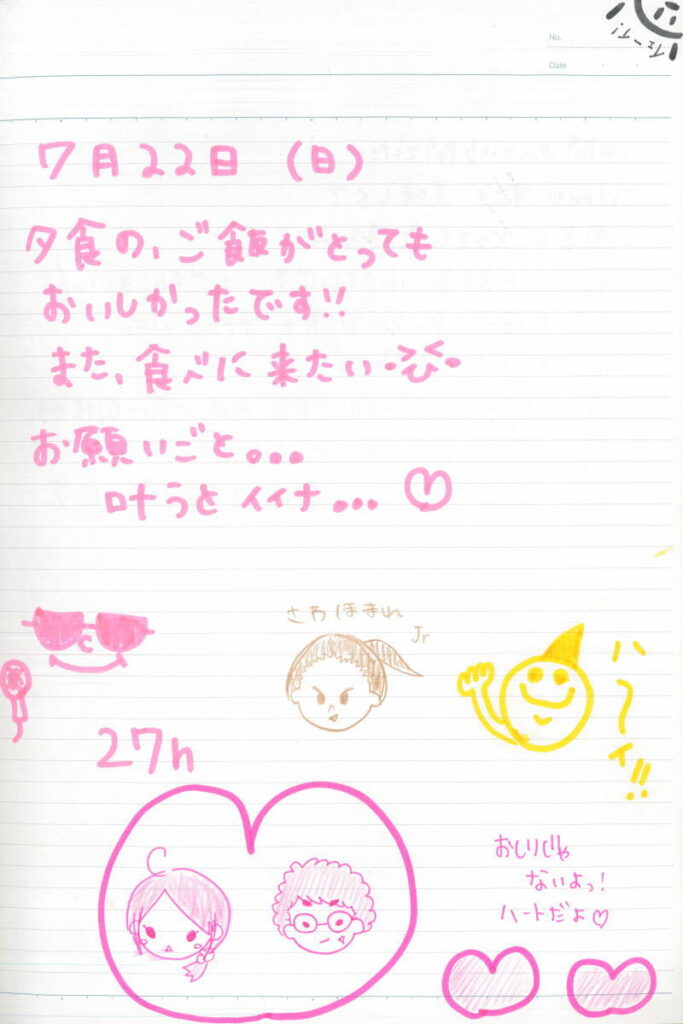 No.
Date
7月22日 (日)
夕食の、ご飯がとっても
おいしかったです!!
また、食べに来たい
お願いごと。。。
叶うとイイナ。。。♡
さわほまれ
Jr
ハ〜イ!!
27h
おしりじゃ
ないよっ!
ハートだよ♡